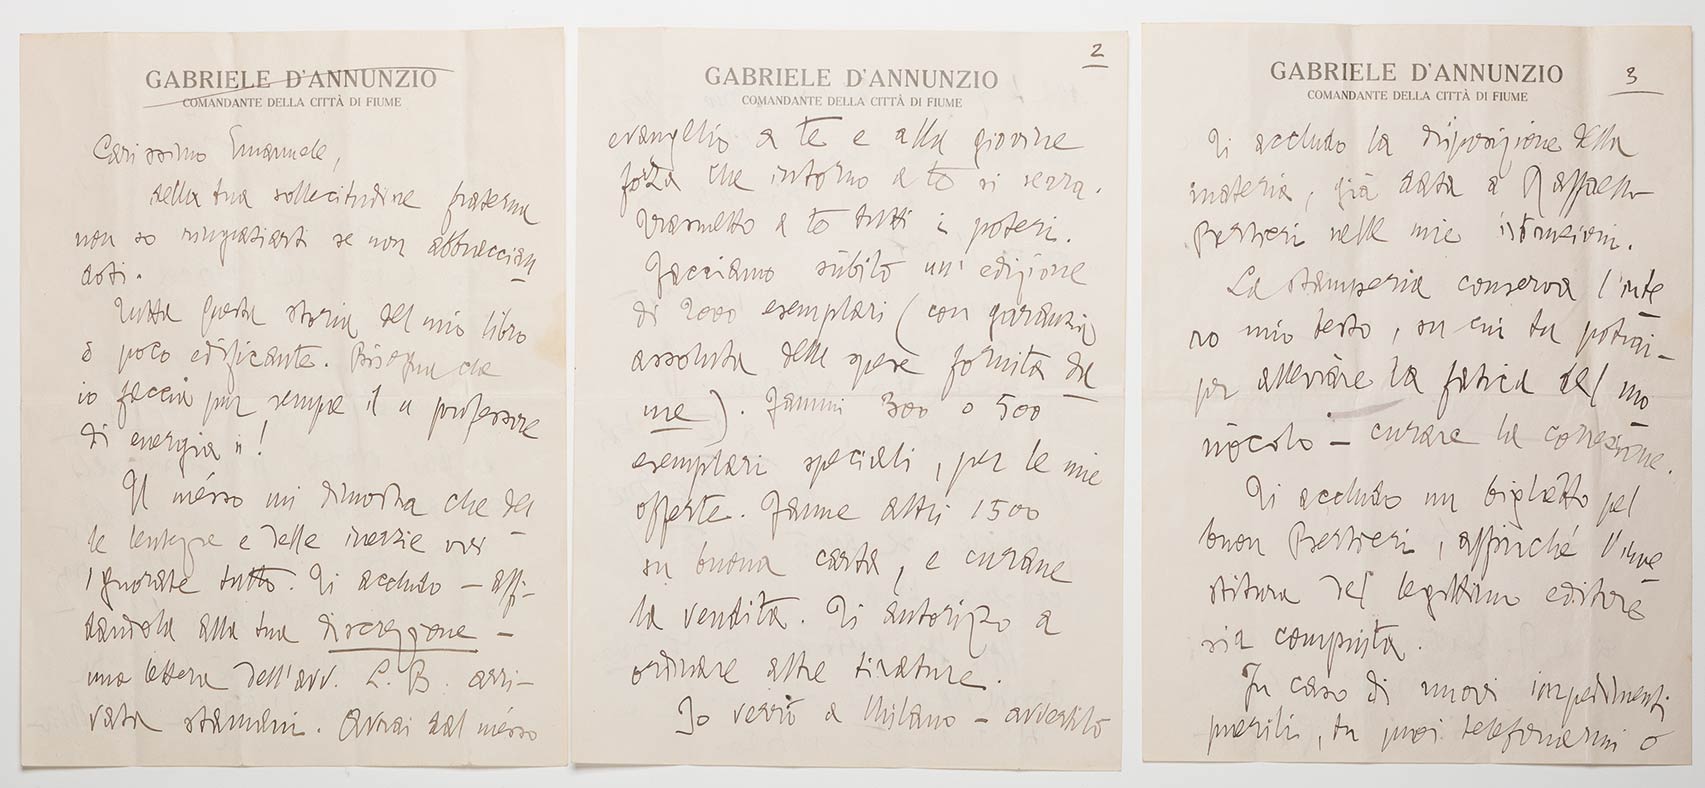 GABRIELE D'ANNUNZIO
COMANDANTE DELLA CITTÀ DI FIUME
Carissimo Emanuele,
della tua sollecitudine fraterna
non so ringraziarti se non abbraccian
doti.
Tutta questa storia del mio libro
è poco edificante. Bisogna che
io faccia pur sempre il « professore
di energia »!
Il messo mi dimostra che del
le lentezze e delle inerzie voi
ignorate tutto. Ti accludo – affi-
dandola alla tua discrezione –
una lettera dell'avv. L. B. arri-
vata stamani. Avrai dal messo
2
GABRIELE D'ANNUNZIO
COMANDANTE DELLA CITTÀ DI FIUME
evangelio a te e alla giovine
forza che intorno a te si serra.
Trasmetto a te tutti i poteri.
Facciamo sùbito un'edizione
di 2000 esemplari (con garanzia
assoluta delle spese fornita da
me). Fammi 300 o 500
esemplari speciali, per le mie
offerte. Fanne altri 1500
su buona carta, e curane
la vendita. Ti autorizzo a
ordinare altre tirature.
Io verrò a Milano – avvertito
3
GABRIELE D'ANNUNZIO
COMANDANTE DELLA CITTÀ DI FIUME
Ti accludo la disposizione della
materia, già data a Raffaello
Bertieri nelle mie istruzioni.
La stamperia conserva l'inte
ro mio testo, su cui tu potrai –
per alleviare la fatica del mio
– curare la correzione.
Ti accludo un biglietto pel
buon Bertieri, affinché l'inve
stitura del legittimo editore
sia compiuta.
In caso di nuovi impedimenti
puerili, tu puoi telefonarmi o